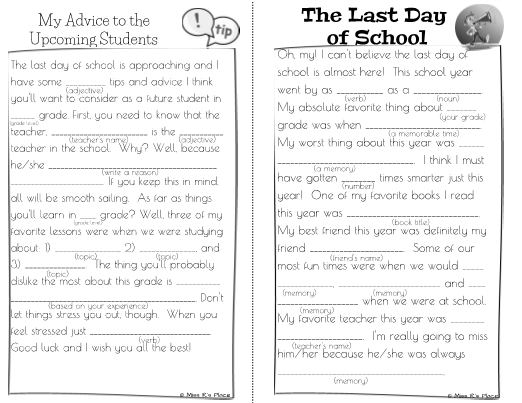 My Advice to the
Upcoming Students
!
tip
The last day of school is approaching and I
have some ________ tips and advice I think
(adjective)
you'll want to consider as a future student in
______ grade. First, you need to know that the
(grade level)
teacher, ____________________ is the _________
(teacher's name) (adjective)
teacher in the school. Why? Well, because
he/she ___________________________________
(write a reason)
___________________. If you keep this in mind,
all will be smooth sailing. As far as things
you'll learn in ____ grade? Well, three of my
(grade level)
favorite lessons were when we were studying
about: 1) _____________, 2) ____________, and
(topic) (topic)
3) _____________. The thing you'll probably
(topic)
dislike the most about this grade is _________
_______________________________________. Don't
(based on your experience)
let things stress you out, though. When you
feel stressed just _________________________
(verb)
Good luck and I wish you all the best!
© Miss K's Place
The Last Day
of School
Oh, my! I can't believe the last day of
school is almost here! This school year
went by as __________ as a __________
(verb) (noun)
My absolute favorite thing about ______
(your grade)
grade was when ________________________.
(a memorable time)
My worst thing about this year was _____
____________________________. I think I must
(a memory)
have gotten _______ times smarter just this
(number)
year! One of my favorite books I read
this year was ____________________________.
(book title)
My best friend this year was definitely my
friend ____________________. Some of our
(friend's name)
most fun times were when we would ____
____________, ________________ and ____
(memory) (memory)
________________ when we were at school.
(memory)
My favorite teacher this year was _______
__________________. I'm really going to miss
(teacher's name)
him/her because he/she was always
___________________________________.
(memory)
© Miss K's Place